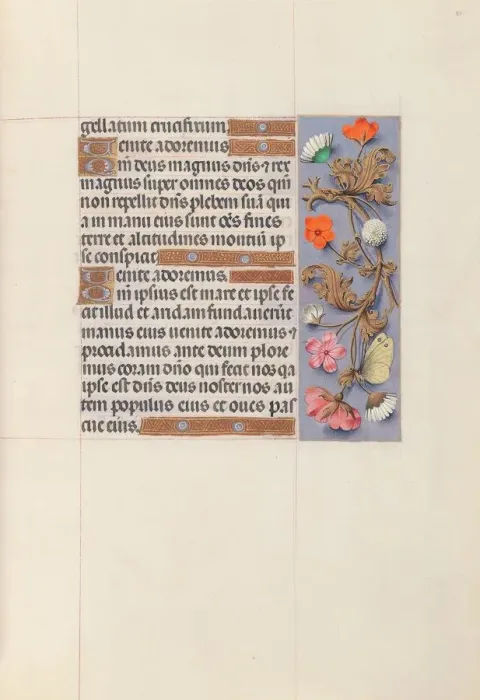 gellatum crucifixum.
Venite adoremus.
Qm̄ deus magnus dn̄s ⁊ rex
magnus super omnes deos qm̄
non repellit dn̄s plebem suā qui
a in manu eius sunt oēs fines
terre et altitudines montiū ip
se conspicit
Venite adoremus.
Qm̄ ipsius est mare et ipse fe
cit illud et aridam fundauerūt
manus eius uenite adoremus ⁊
procidamus ante deum plore
mus coram dn̄o qui fecit nos qa
ipse est dn̄s deus noster nos au
tem populus eius et oues pas
cue eius.